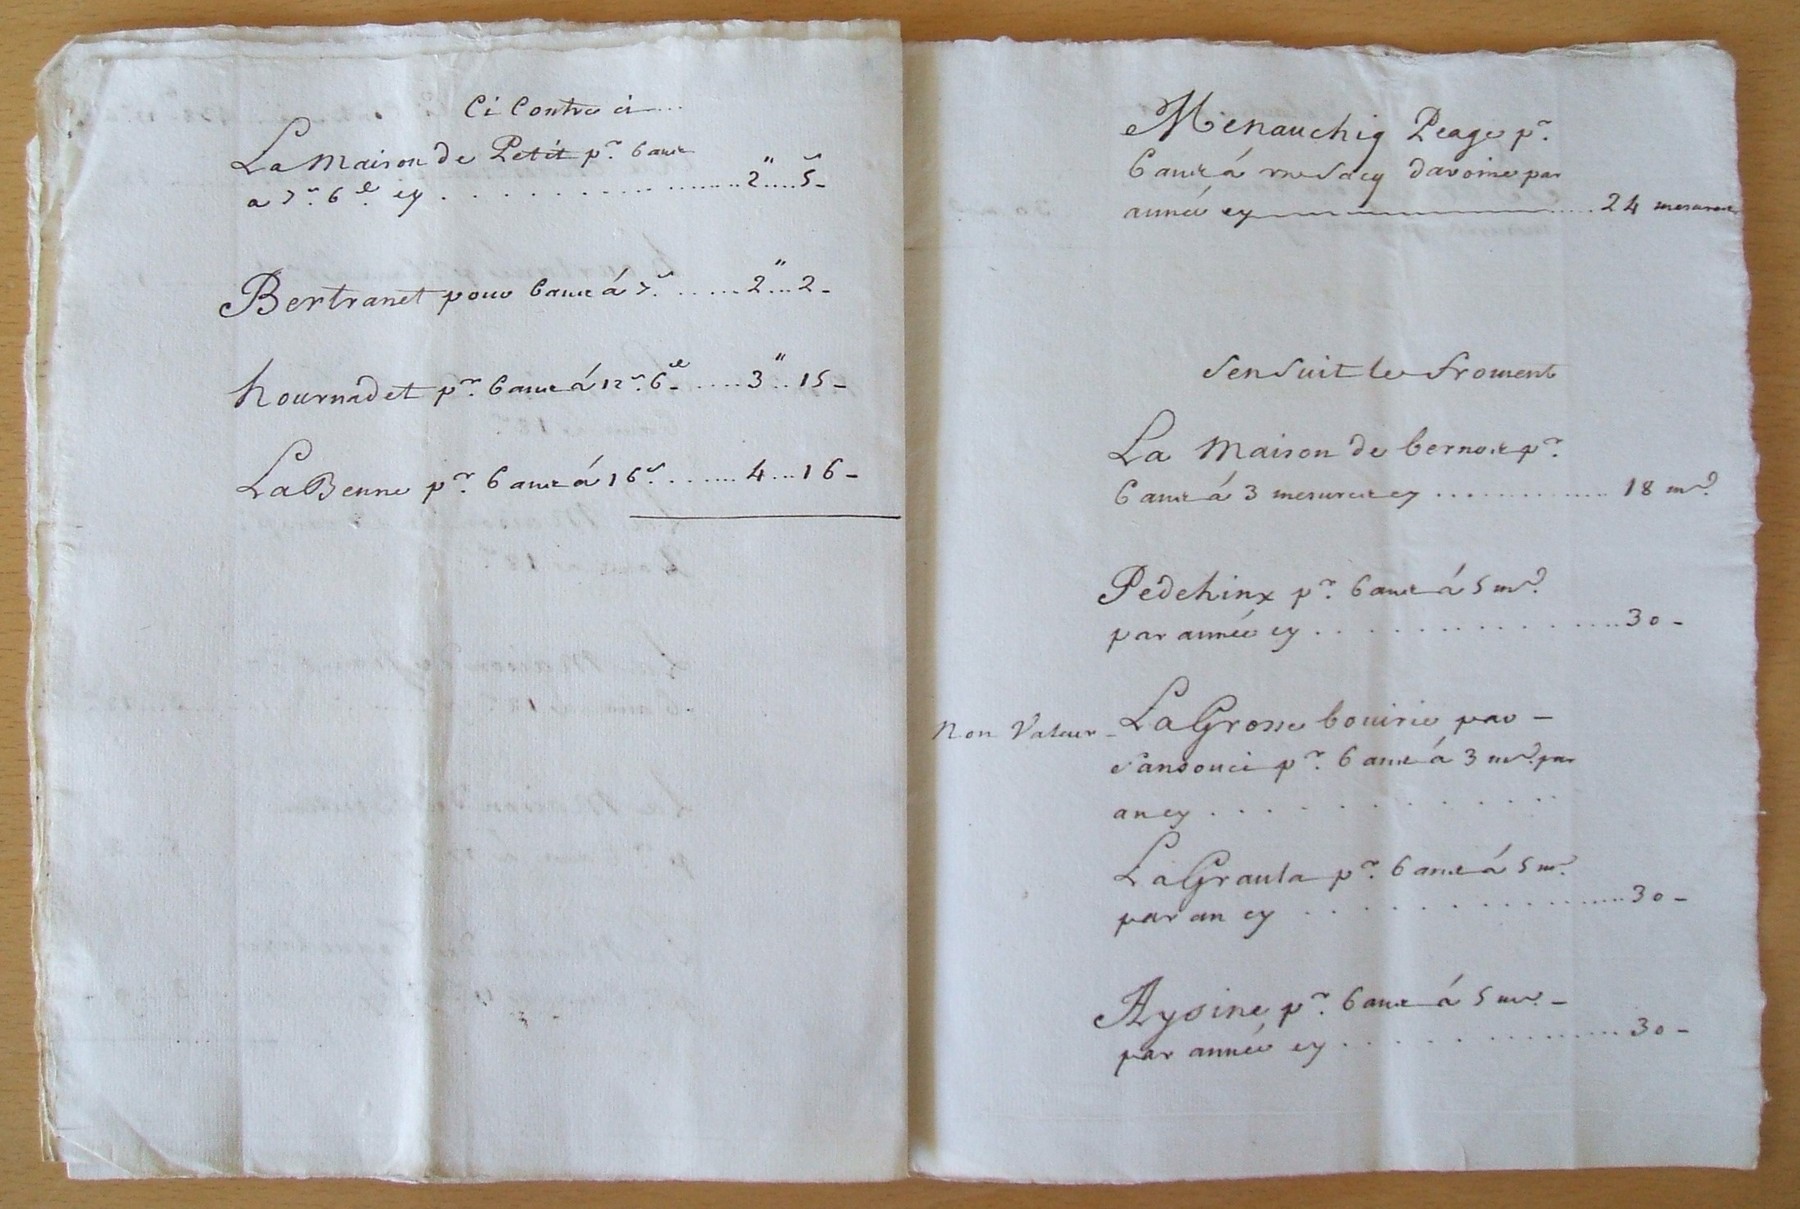 Ci Contre ci....
La Maison de Petit pr. 6 ans
a 7s. 6d. cy ............ 2 " .... 5 -
Bertranet pour 6 ans á 7s. ...... 2 " ... 2 -
hournadet pr. 6 ans á 12s. 6d. ..... 3 " .. 15 -
LaBenne pr. 6 ans á 16s. ...... 4 ... 16 -
Menauchig Peage pr.
6 ans á un sacq davoine par
année cy ..... 24 mesures
sensuit le froment
La Maison de bernos pr.
6 ans á 3 mesures cy ............ 18 mes
Pedehinx pr. 6 ans á 5 mes.
par année cy ............ 30 -
Non Valeur - LaGrosse bouirie par -
sansouci pr. 6 ans á 3 mes. par
an cy ............
LaGraula pr. 6 ans á 5 mes.
par an cy ............ 30 -
Aysine pr. 6 ans á 5 mes. -
par année cy ............ 30 -